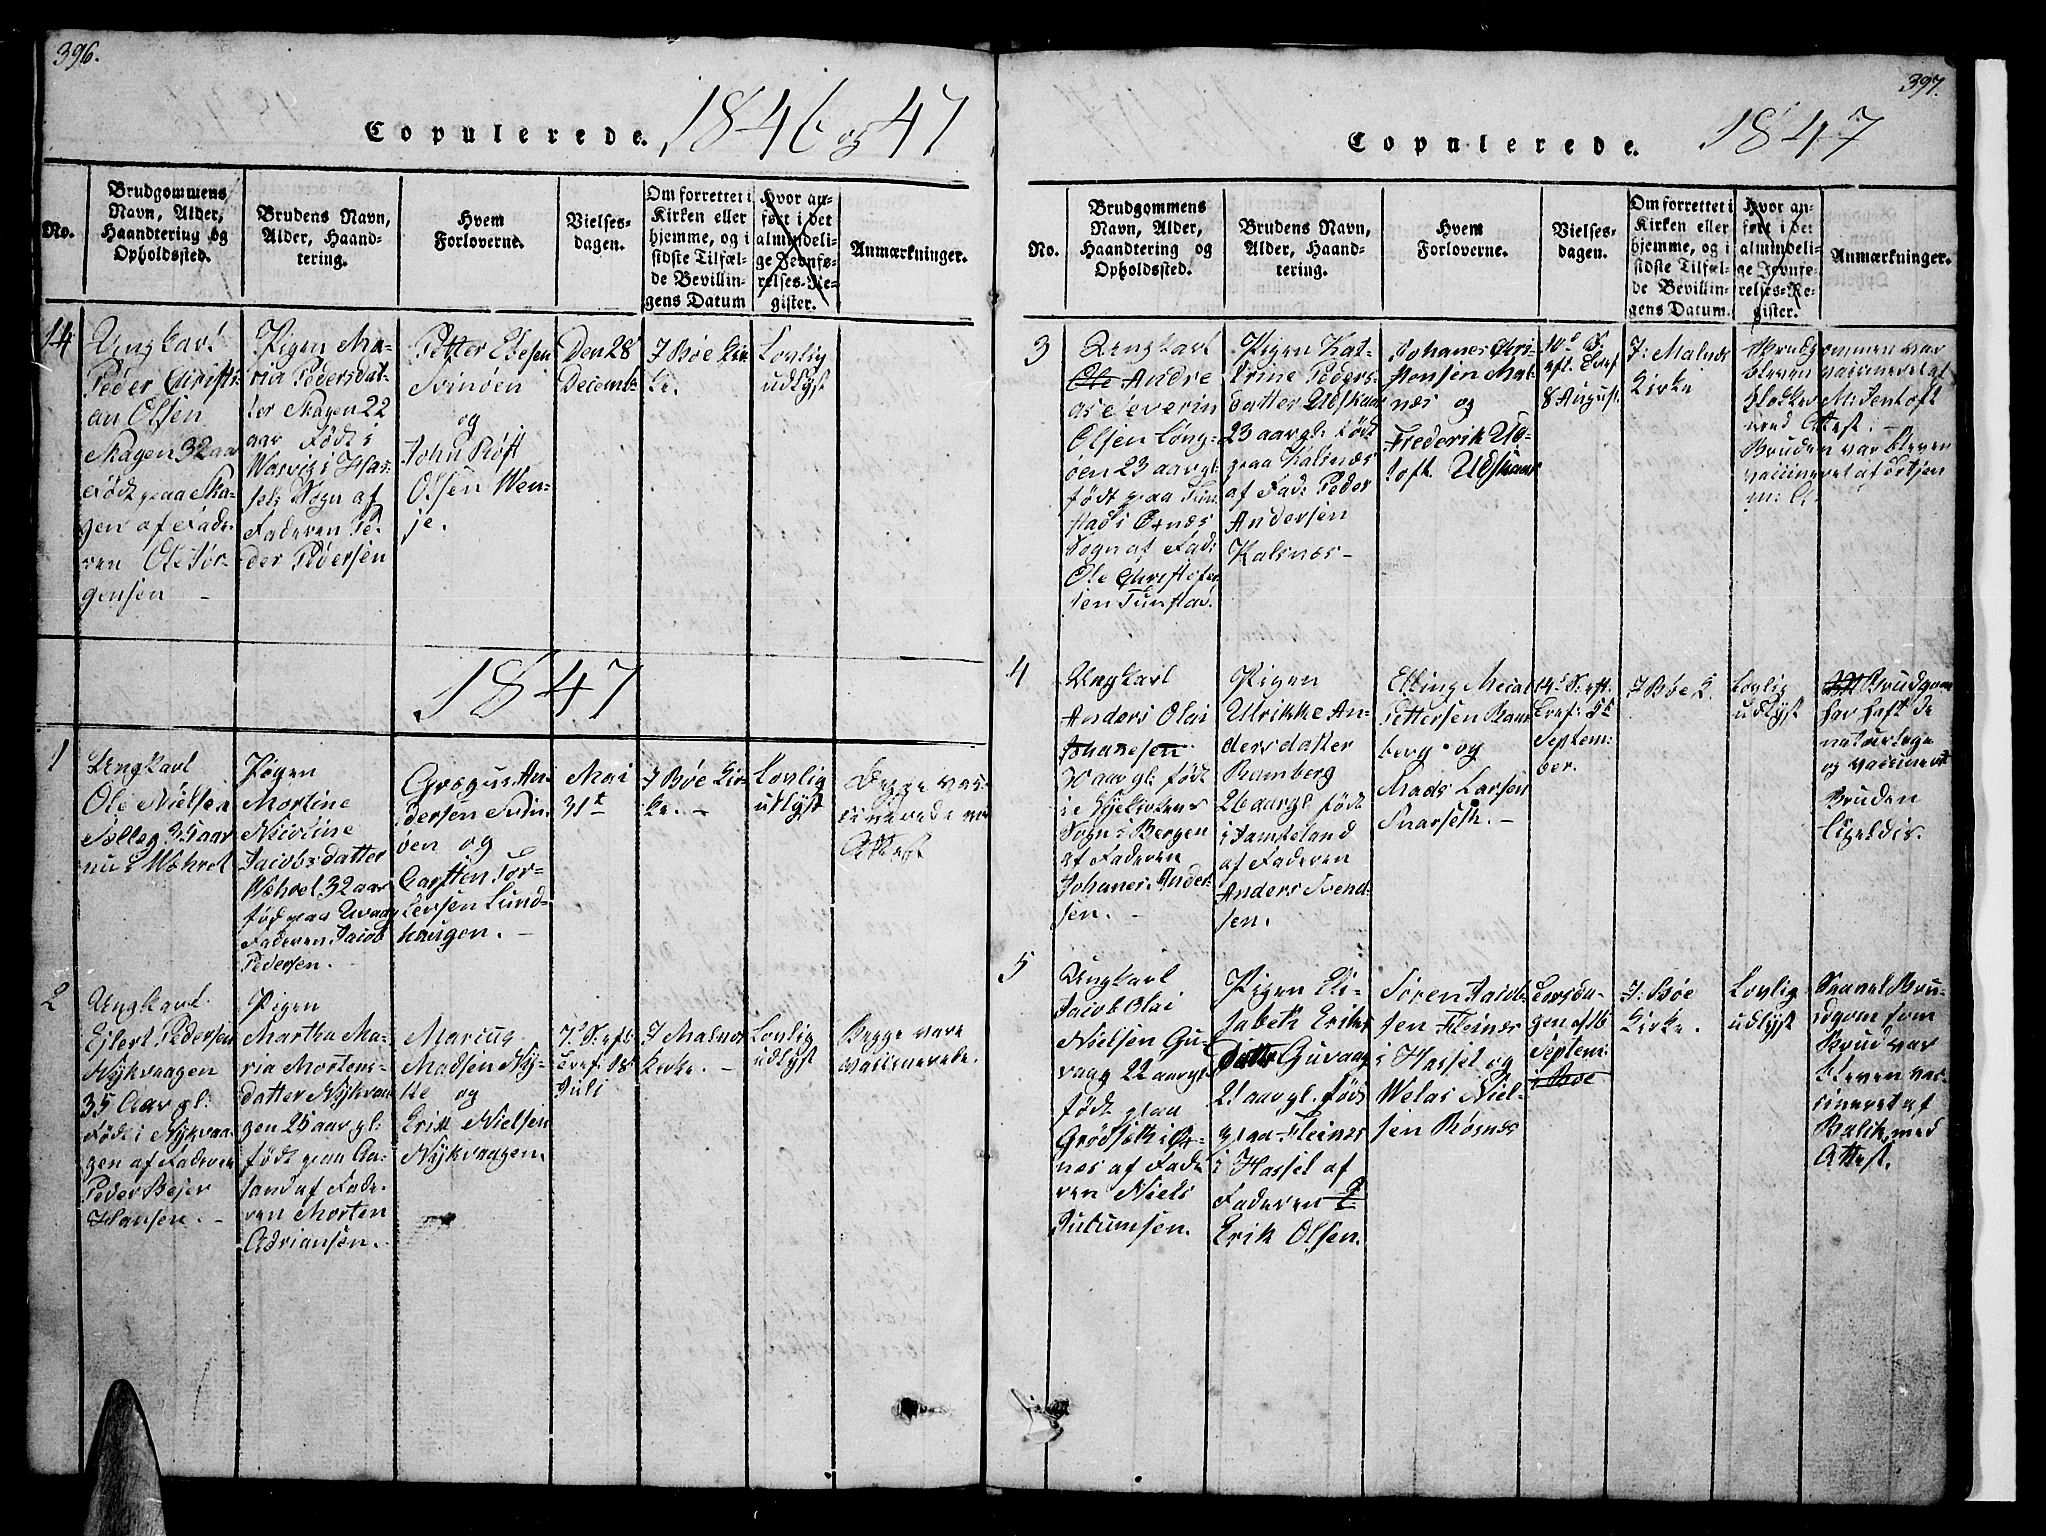 396.
Copulerede. 1846 og 47
No.
Brudgommens
Navn, Alder,
Haandtering og
Opholdssted.
Brudens Navn,
Alder, Haand-
tering.
Hvem
Forloverne.
Vielses-
dagen.
Om forrettet i
Kirken eller
hjemme, og i
sidste Tilfæl-
de Bevillin-
gens Datum
Hvor an-
ført i det
almindeli-
ge Jevnfø-
relses-Re-
gister.
Anmærkninger.
14
Ungkarl
Peder Christi
an Olsen
Skagen 32 aar
Født paa Ska-
gen af Fade-
ren Ole Jør-
gensen
Pigen Ma-
ria Pedersdat-
ter Skagen 22
aar Født i
i Has-
sels Sogn af
Faderen Pe-
der Pedersen
Petter Ebesen
Svinøen
og
John Røst
Olsen Wen-
je.
Den 28
Decemb:
I Bøe Kir
ke.
Lovlig
udlyst
1847
1
Ungkarl
Ole Nielsen
35 aar
nu i
Pigen
Mortine
Nicoline
Jacobsdatter
32 aar
fød paa
Faderen Jacob
Pedersen.
Andersen Svin
øen og
Carsten Tor-
lersen Lund-
haugen.
Mai
31te
I Bøe Kir-
ke.
Lovlig
udlyst
Begge vac-
cinerede
Attest
2
Ungkarl
Ejlert Pedersen
Nykvaagen
35 Aar gl:
Født i Nykvaa-
gen af Faderen
Peder Bejer
Hansen.
Pigen
Martha Ma-
ria Mortens-
datter Nykvaa
gen 25 aar gl:
født paa Aa-
sand af Fade-
ren Morten
Adriansen.
Marcus
Madsen Nyk-
ke og
Erik Nielsen
Nykvaagen.
7de S: eft:
Tref: 18
Juli
I Malnes
Kirke.
Lovlig
udlyst
Begge vare
vaccinerede.
397.
Copulerede. 1847
No.
Brudgommens
Navn, Alder,
Haandtering og
Opholdssted.
Brudens Navn,
Alder, Haand-
tering.
Hvem
Forloverne.
Vielses-
dagen.
Om forrettet i
Kirken eller
hjemme, og i
sidste Tilfæl-
de Bevillin-
gens Datum.
Hvor an-
ført i det
almindeli-
ge Jevnfø-
relses-Re-
gister.
Anmærkninger.
3
Ungkarl
Ole Andre
as Severin
Olsen Lang-
øen 23 aar gl:
født paa Tun
stad i Øxnæs
Sogn af Fad:
Ole Christofer
sen Tunstad.
Pigen Kat-
trine Peders-
datter
23 aar gl: født
paa Kalsnæs
af Fad: Peder
Andersen
Kalsnæs
Johanes Chri-
stensen Mal-
næs og
Frederik
toft
10de S:
eft. Tref
8 August.
I: Malnæs
Kirke
Brudgommen var
bleven vaccineret af
Klokker M: Jentoft
med Attest.
Bruden var bleven
vaccineret af
m: A
4
Ungkarl
Anders Olai
Johanesen
30 aar gl: født
i
Sogn i Bergen
af Faderen
Johanes Ander
sen.
Pigen
Ulrikke An-
dersdatter
Ramberg
26 aar gl: født
i Jamteland
af Faderen
Anders Svend-
sen.
Elling
Pettersen Ram
berg og
Mads Larsen
Snarseth.
14de S: eft.
Tref: 5te
Septem-
ber.
I Bøe K
Lovlig
udlyst
Brudgom
har haft de
naturlige
og vaccineret
Bruden
ligeledis.
5
Ungkarl
Jacob Olai
Nielsen Gu-
vaag 22 aar gl.
født paa
i Øx-
næs af Fade
ren Niels
Pigen Eli-
sabeth Eriks
datter Guvaag
21 aar gl. fød
paa Fleinæs
i Hassel af
Faderen
Erik Olsen.
Søren Jacob
sen Fleinæs
i Hassel og
Niel-
sen Røsnes
Torsda-
gen d 16
Septem:
i Bøe
I: Bøe
Kirke.
Lovlig
udlyst
Saavel Bru-
dgom som
Brud var
bleven vac-
cineret af
Balik med
Attest.